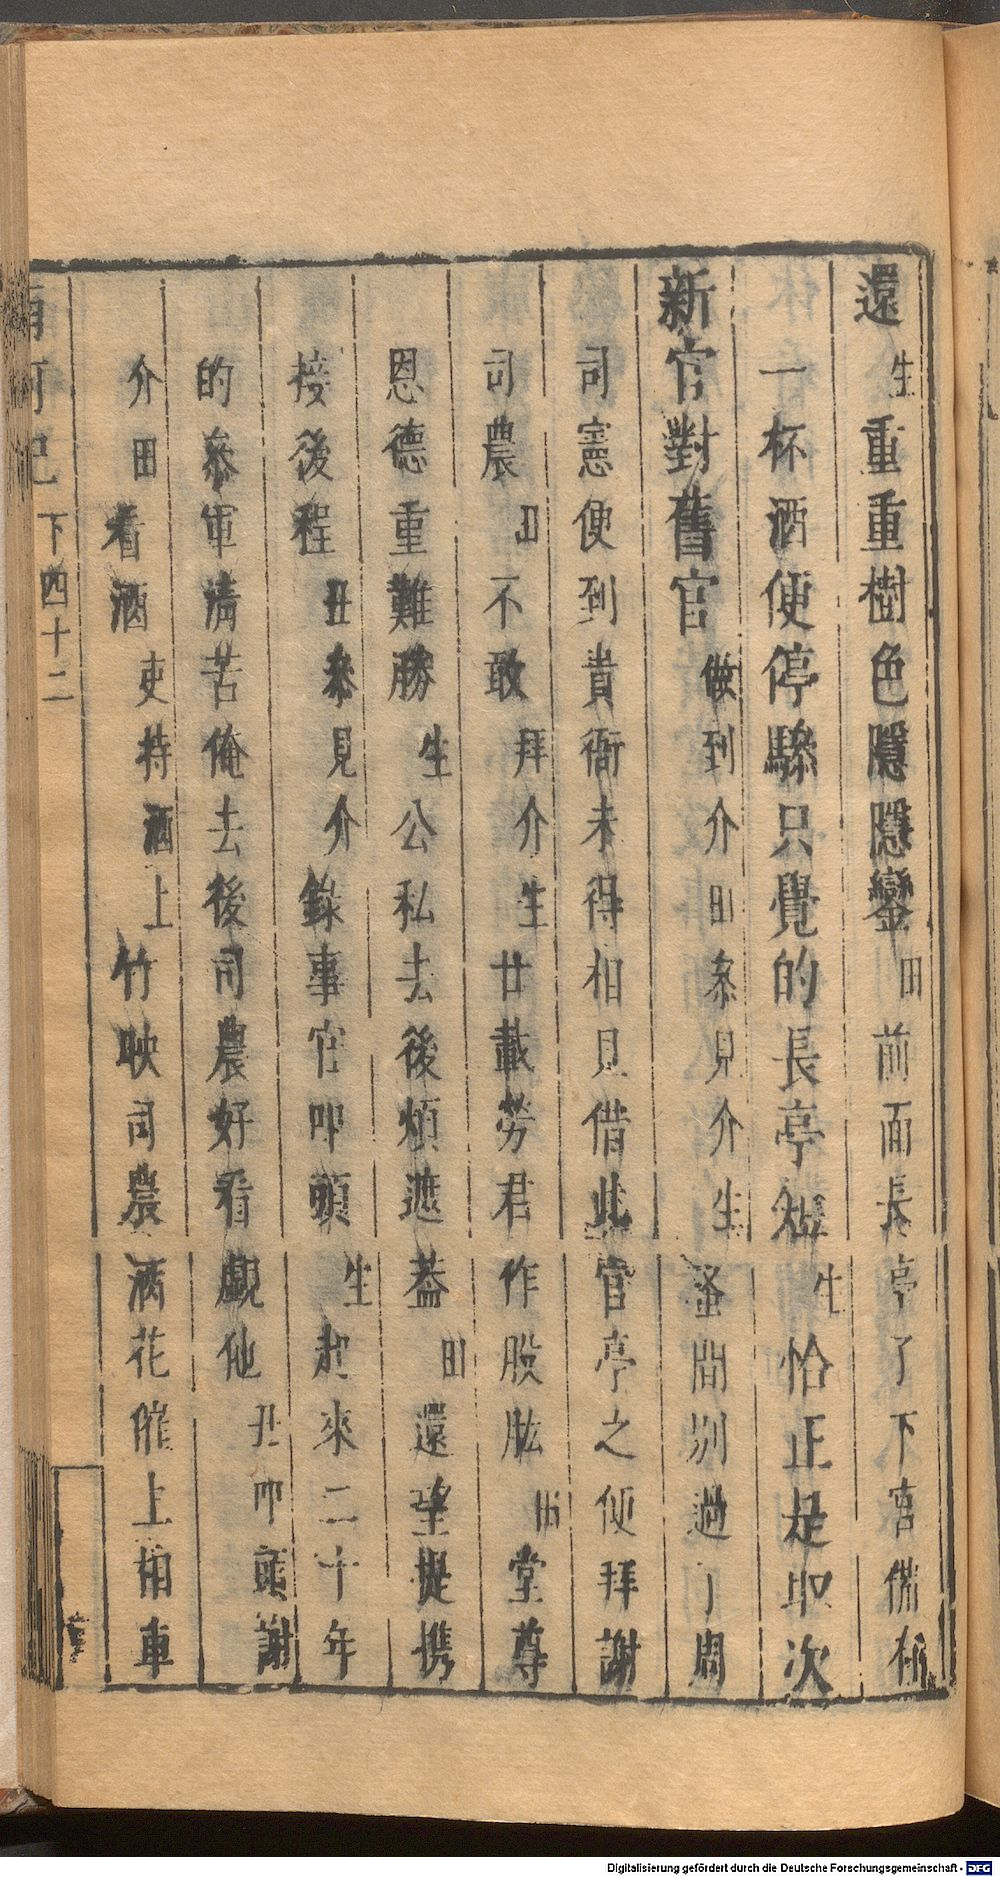 還生重重樹色隱隱鑾田前面長亭了下官備有
一杯酒便停驂只覺的長亭短生恰正是取次
新官對舊官做到介田叅見介生蚤間別過了周
司憲便到貴衙未得相見借此官亭之便拜謝
司農田不敢拜介生廿載勞君作股肱田堂尊
恩德重難勝生公私去後煩遮葢田還望提携
接後程丑叅見介錄事官叩頭生起來二十年
的叅軍清苦俺去後司農好看覷他丑叩頭謝
介田看酒吏持酒上竹映司農酒花催上栢車
南柯記 下 四十二
Digitalisierung gefördert durch die Deutsche Forschungsgemeinschaft - DFG